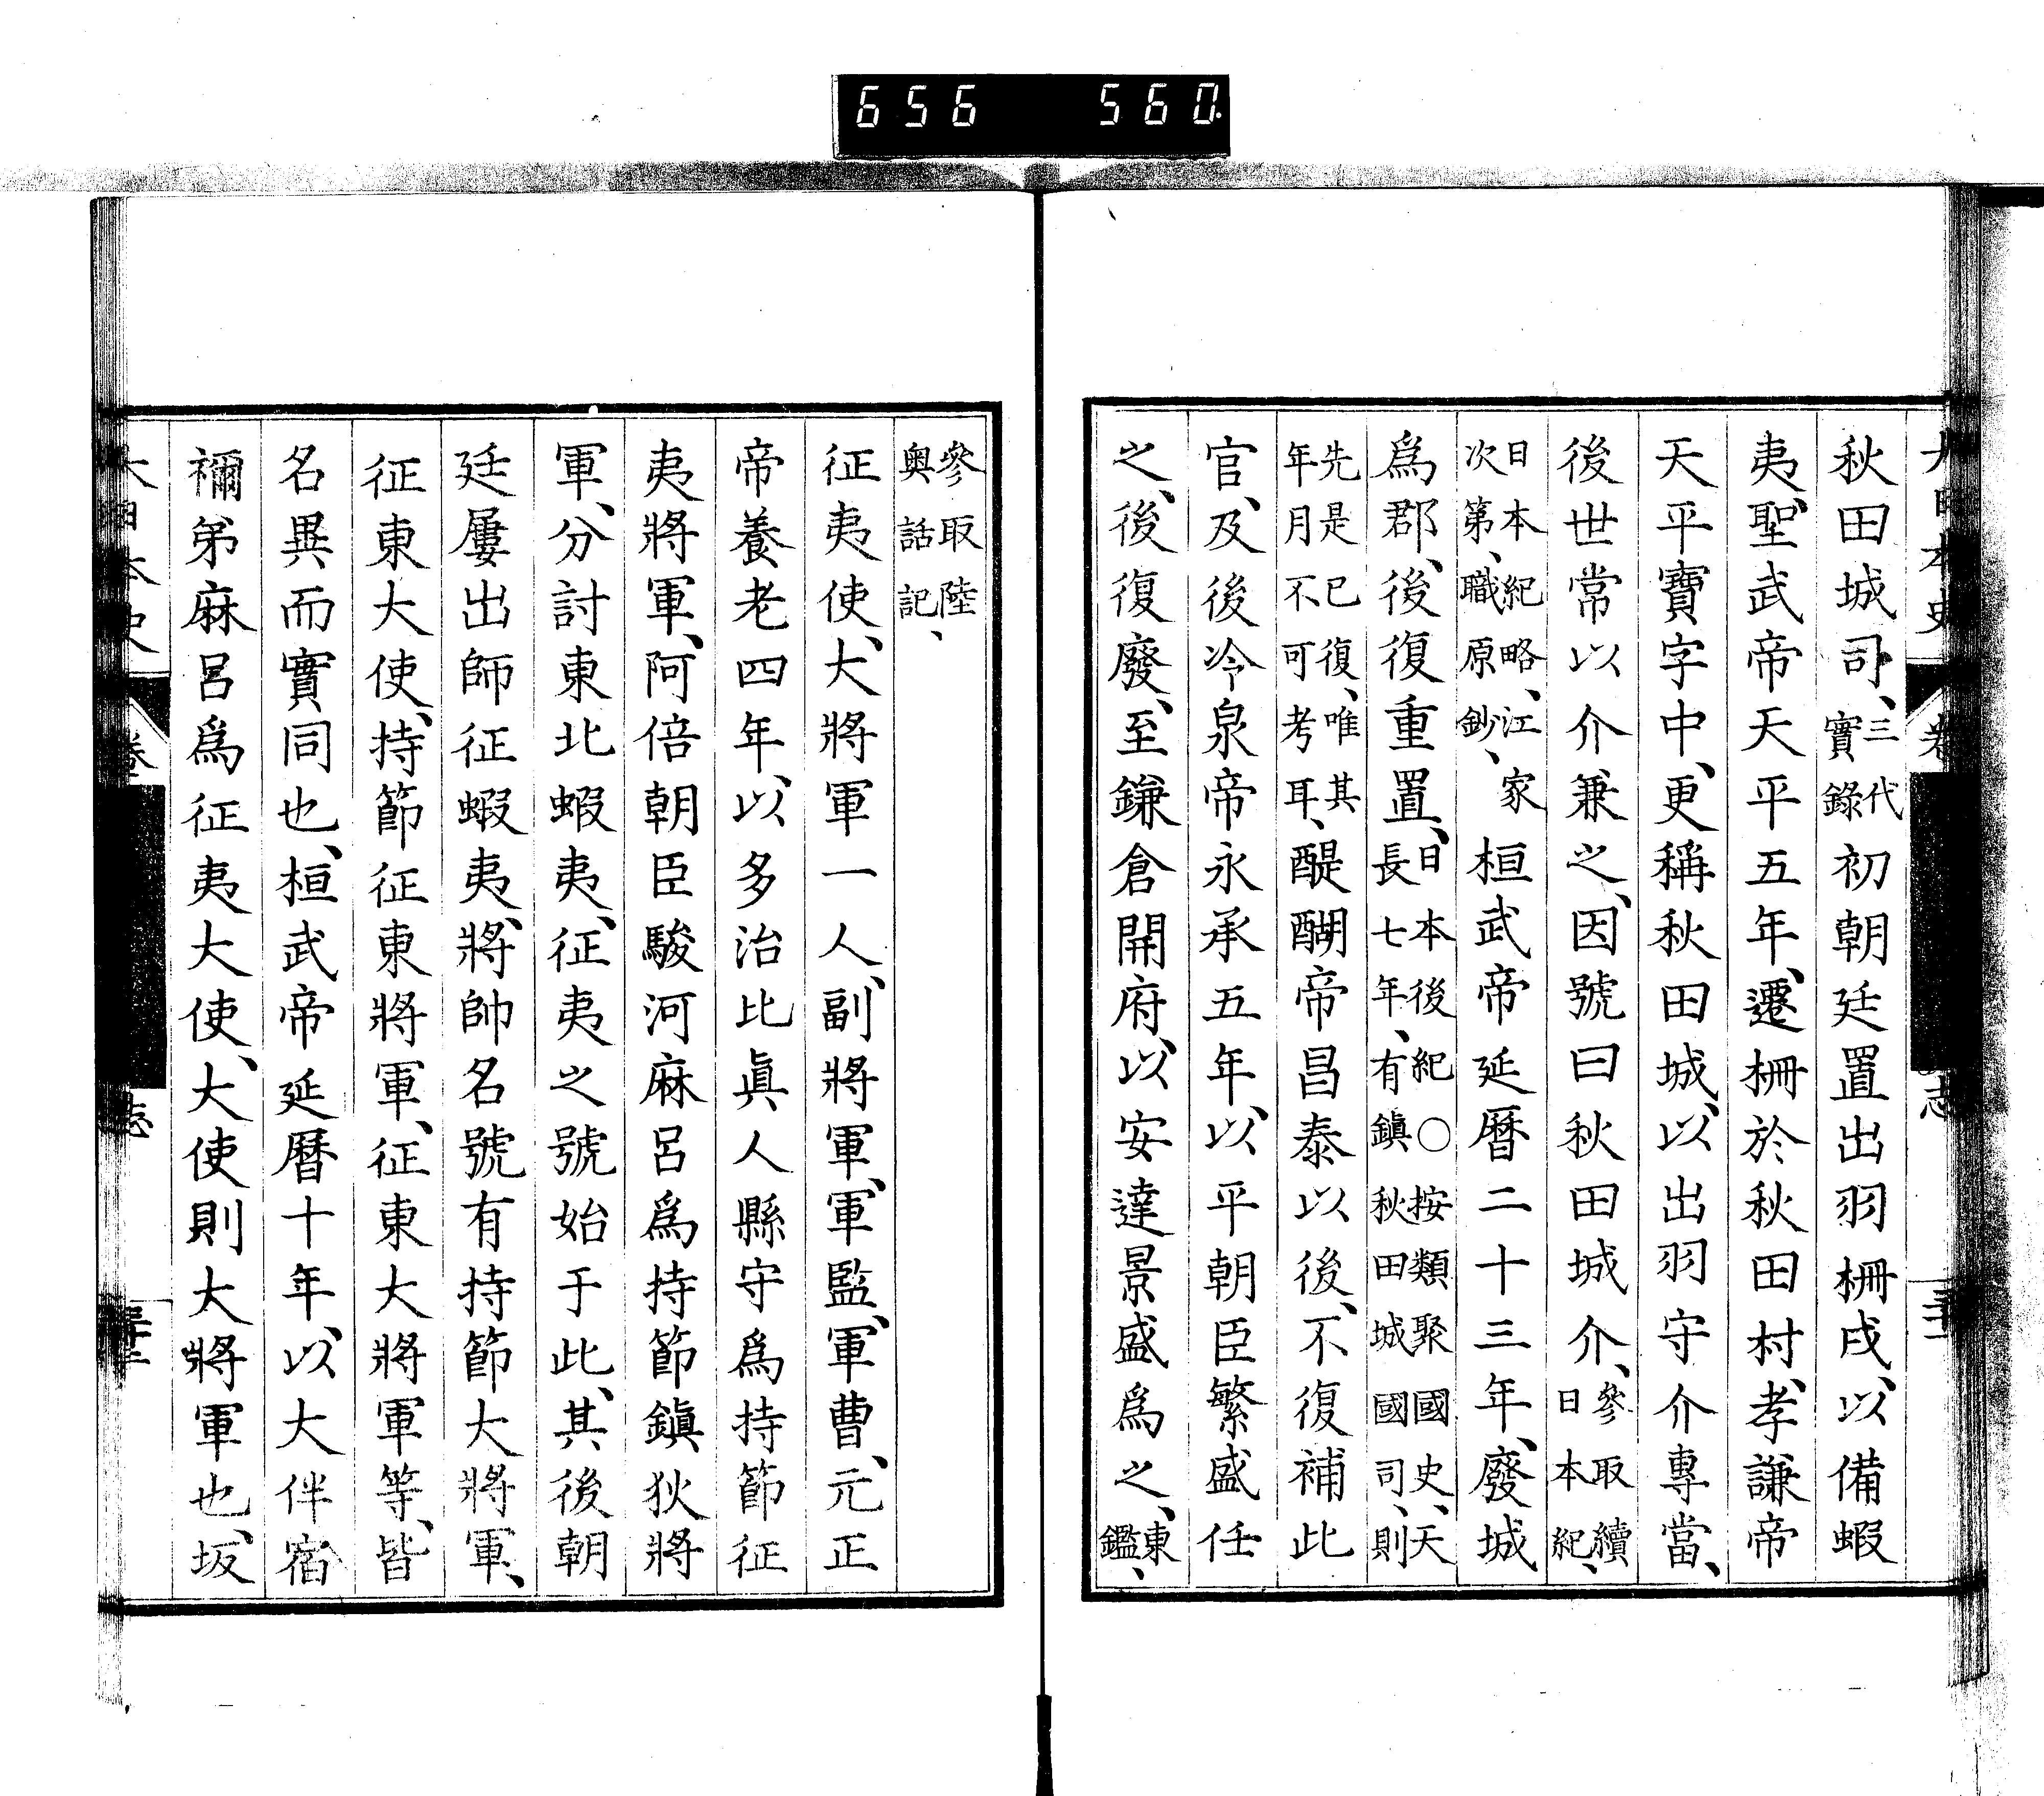 656 560.
大日本史 卷 志
秋田城司、三代實錄初朝廷置出羽柵戌、以備蝦
夷、聖武帝天平五年、遷柵於秋田村、孝謙帝
天平寶字中、更稱秋田城、以出羽守介專當、
後世常以介兼之、因號曰秋田城介、參取續日本紀、
日本紀略、江家次第、職原鈔、桓武帝延曆二十三年、廢城
爲郡、後復重置、日本後紀○按類聚國史、天長七年、有鎭秋田城國司、則
先是已復、唯其年月不可考耳、醍醐帝昌泰以後、不復補此
官、及後冷泉帝永承五年、以平朝臣繁盛任
之、後復廢、至鎌倉開府、以安達景盛爲之、東鑑、
參取陸奧話記、
征夷使、大將軍一人、副將軍、軍監、軍曹、元正
帝養老四年、以多治比眞人縣守爲持節征
夷將軍、阿倍朝臣駿河麻呂爲持節鎭狄將
軍、分討東北蝦夷、征夷之號始于此、其後朝
廷屢出師征蝦夷、將帥名號有持節大將軍、
征東大使、持節征東將軍、征東大將軍等、皆
名異而實同也、桓武帝延曆十年、以大伴宿
禰弟麻呂爲征夷大使、大使則大將軍也、坂
大日本史 卷 志